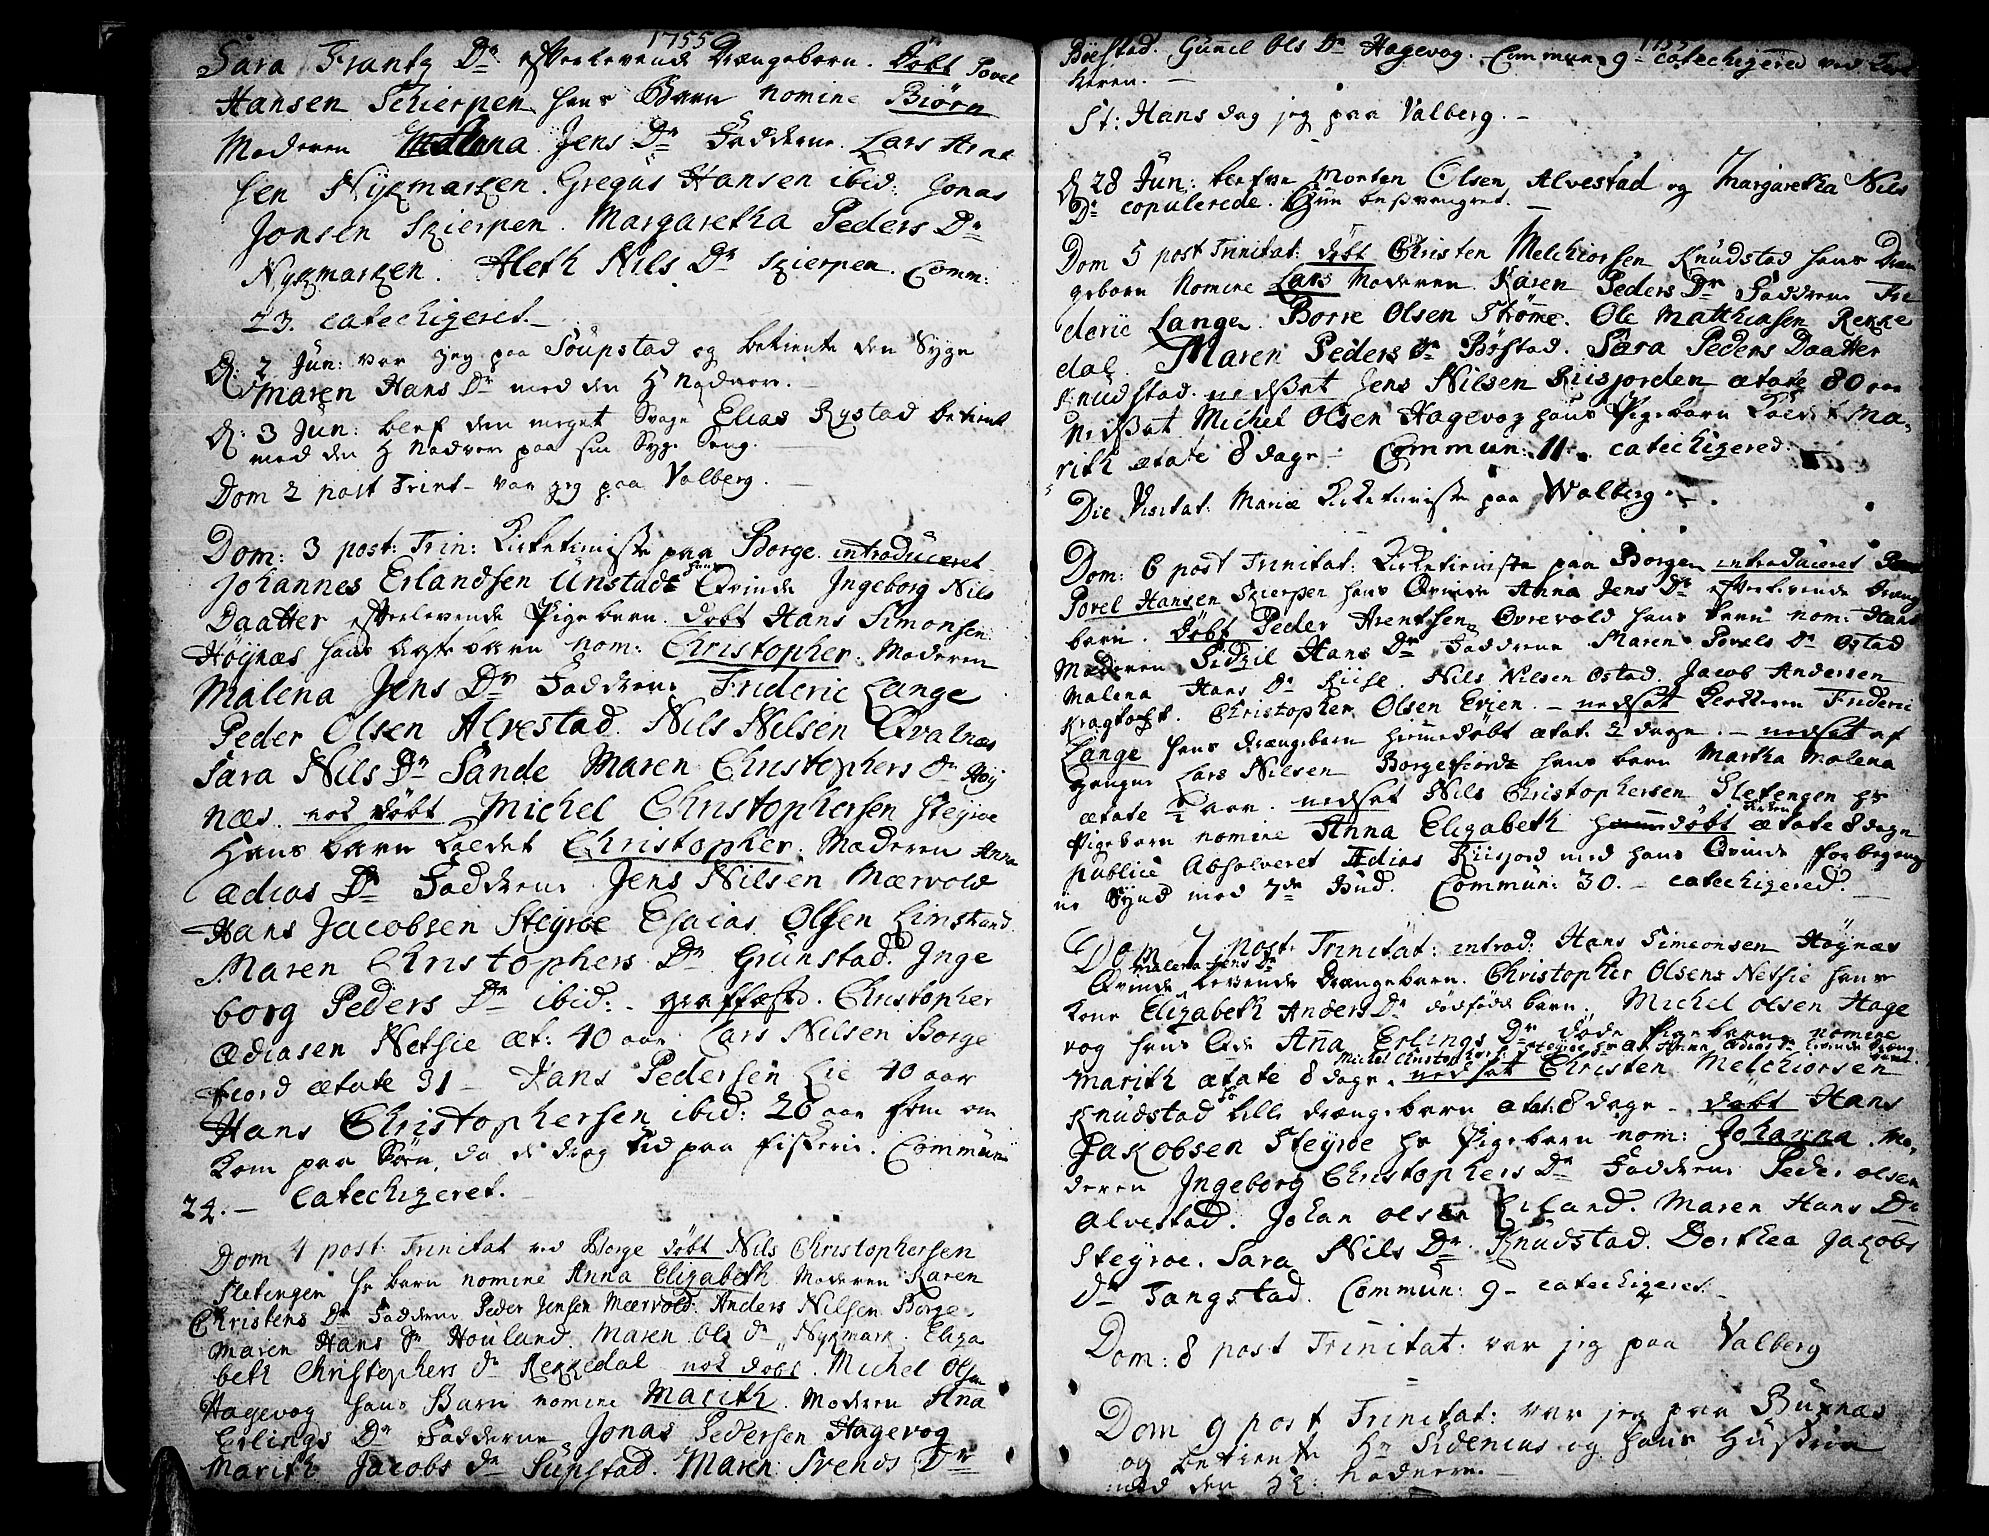 1755
Sara Frantz Dr efterlevende Drængebarn. Døbt Povel
Hansen Schierpen hans Barn Nomine Biørn
Moderen Malena Jens Dr Fadderne Lars Arnt
sen Nykmarken. Gregus Hansen ibid: Jonas
Jonsen Skierpen. Margaretha Peders Dr
Nykmarken. Aleth Nils Dr Skierpen. Comm:
23. catechizeret.
D: 2 Jun: var jeg paa Soupstad og betiente den Syge
Maren Hans Dr med den H Nadvere.
D: 3 Jun: blef den meget Svage Elias Rystad betient
med den H Nadvere paa sin Syge Seng.
Dom 2 post Trint var jeg paa Valberg.
Dom: 3 post: Trin: Kirketieniste paa Borge. introduceret
Johannes Erlandsen Unstads hans Qvinde Ingeborg Nils
Daatter efterlevende Pigebarn. døbt Hans Simonsen
Høynæs hans ægte barn nom: Christopher. Moderen
Malena Jens Dr Fadderne Frideric Lange
Peder Olsen Alvestad. Nils Nilsen Qvalnæs
Sara Nils Dr Sande Maren Christophers Dr Høy
næs. nok døbt Michel Christophersen Steyroe
Hans barn kaldet Christopher. Moderen Anna
Ædias Dr Fadderne Jens Nilsen Mærvold
Hans Jacobsen Steyroe Esaias Olsen Limstrand
Maren Christophers Dr Grunstad. Inge
borg Peders Dr ibid: - graffæstd. Christopher
Ædiasen Netsie æt: 40 aar Lars Nilsen Borge
fiord ætate 31 - Hans Pedersen Lie 40 aar
Hans Christophersen ibid: 26 aar som om
kom paa Søen, da de drog ud paa fiskeri. Commun:
24. - Catechizeret.
Dom 4 post. Trinitat ved Borge døbt Nils Christophersen
Sletengen hs barn nomine Anna Elizabeth. Moderen Karen
Christens Dr Fadderne Peder Jensen Mærvold. Anders Nilsen Borge.
Maren Hans Dr Houland. Maren Ols dr Nykmark. Eliza
beth Christophers dr Rekkedal nok døbt. Michel Olsen
Hagevog hans Barn nomine Marith. Moderen Ana
Erlings Dr Fadderne Jonas Pedersen Hagevog
Marith Jacobs dr Supstad. Maren Svends Dr
1755
Bøstad. Gunnel Ols Dr Hagevog. Commun: 9 - catechizered ved
St: Hans dag jeg paa Valberg. -
D 28 Jun: blefve Morten Olsen Alvestad og Margaretha Nils
Dr copulerede. Hun besvangret.
Dom 5 post Trinitat: døbt Christen Melchiorsen Knudstad hans Dræn
gebarn Nomine Lars Moderen Karen Peders Dr Fadderne Fri
deric Lange. Borre Olsen Strømme. Ole Matthiasen Rekke
dal. Maren Peders Dr Bøstad. Sara Peders Daatter
Knudstad. nedsat Jens Nilsen Riisjorden ætate 80 aar
Nedsat Michel Olsen Hagevog hans Pigebarn kaldet Ma,
rith ætate 8 dage - Commun: 11. catechizered.
Die Visitat. Mariæ Kirketieniste paa Walberg. -
Dom: 6 post Trinitat: Kirketieniste paa Borgen introduceret
Povel Hansen Skierpen hans Qvinde Anna Jens Dr efterlevende Dreng
barn. Døbt Peder Arentsen Øvrevold hans barn nom: Hans
Moderen Sidzil Hans Dr Fadderne Maren Povels Dr Ostad
Malena Hans Dr Riise. Nils Nilsen Ostad. Jacob Andersen
Kragtoft. Christopher Olsen Evjen. - nedsat Frideric
Lange hans drængebarn hiemmedøbt ætat: 2 dage. - nedsat af
gangne Lars Nilsen Borgefiords hans barn Martha Malena
ætate ½ aar. nedsat Nils Christophersen Sletengen hs
Pigebarn nomine Anna Elizabeth døbt ætate 8 dage
Publice Absolveret Adias Riisjord med hans Qvinde for begang
ne Synd mod 7de Bud. Commun: 30. - catechizered.
Dom 7 post. Trinitat: introd: Hans Simonsen Høynæs
Malena Jens Dr
Qvinde levende Drængebarn. Christopher Olsens Netsie hans
kone Elizabeth Anders Dr dødføde barn. Michel Olsen Hage
vog hans Qde Anna Erlings Dr døde Pigebarn nomine
Michel Christophers: Steyroe hs Anna Ædias dr levende dræng
Marith ætate 8 dage. nedsat Christen Melchiorsen
Knudstad lille drængebarn ætat: 8 dage - døbt Hans
Jakobsen Steyroe hs Pigebarn nom: Johanna. Mo,
deren Ingeborg Christophers Dr Fadderne Peder Olsen
Alvestad. Johan Olsen Eiland. Maren Hans Dr
Steyroe. Sara Nils Dr Knudstad. Dorthea Jakobs
Dr Tangstad. Commun: 9 - catechizeret.
Dom: 8 post Trinitat: var jeg paa Valberg
Dom 9 post Trinitat: var jeg paa Buxnæs
og betiente Hr Sidenius og hans Hustrue
med den H: Nadvere. -